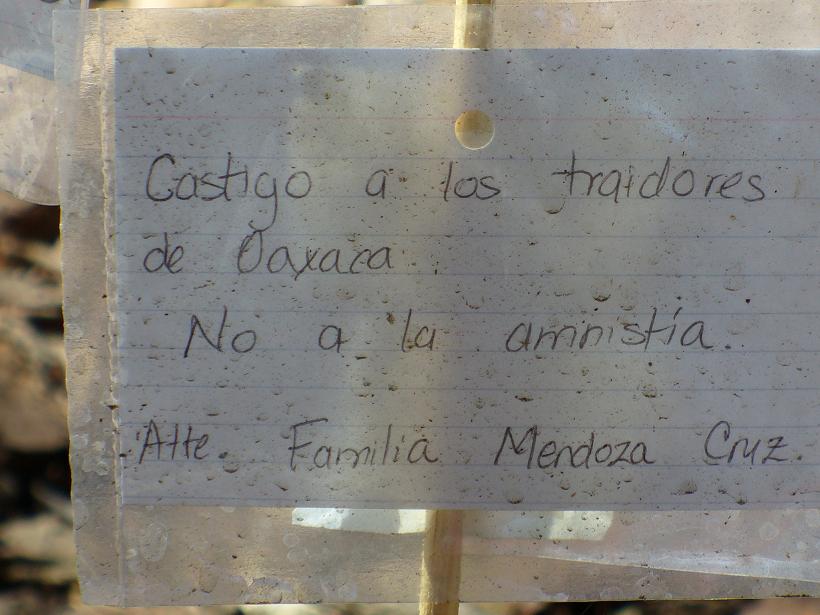 Castigo a los traidores
de Oaxaca.
No a la amnistía.
Atte. Familia Mendoza Cruz.